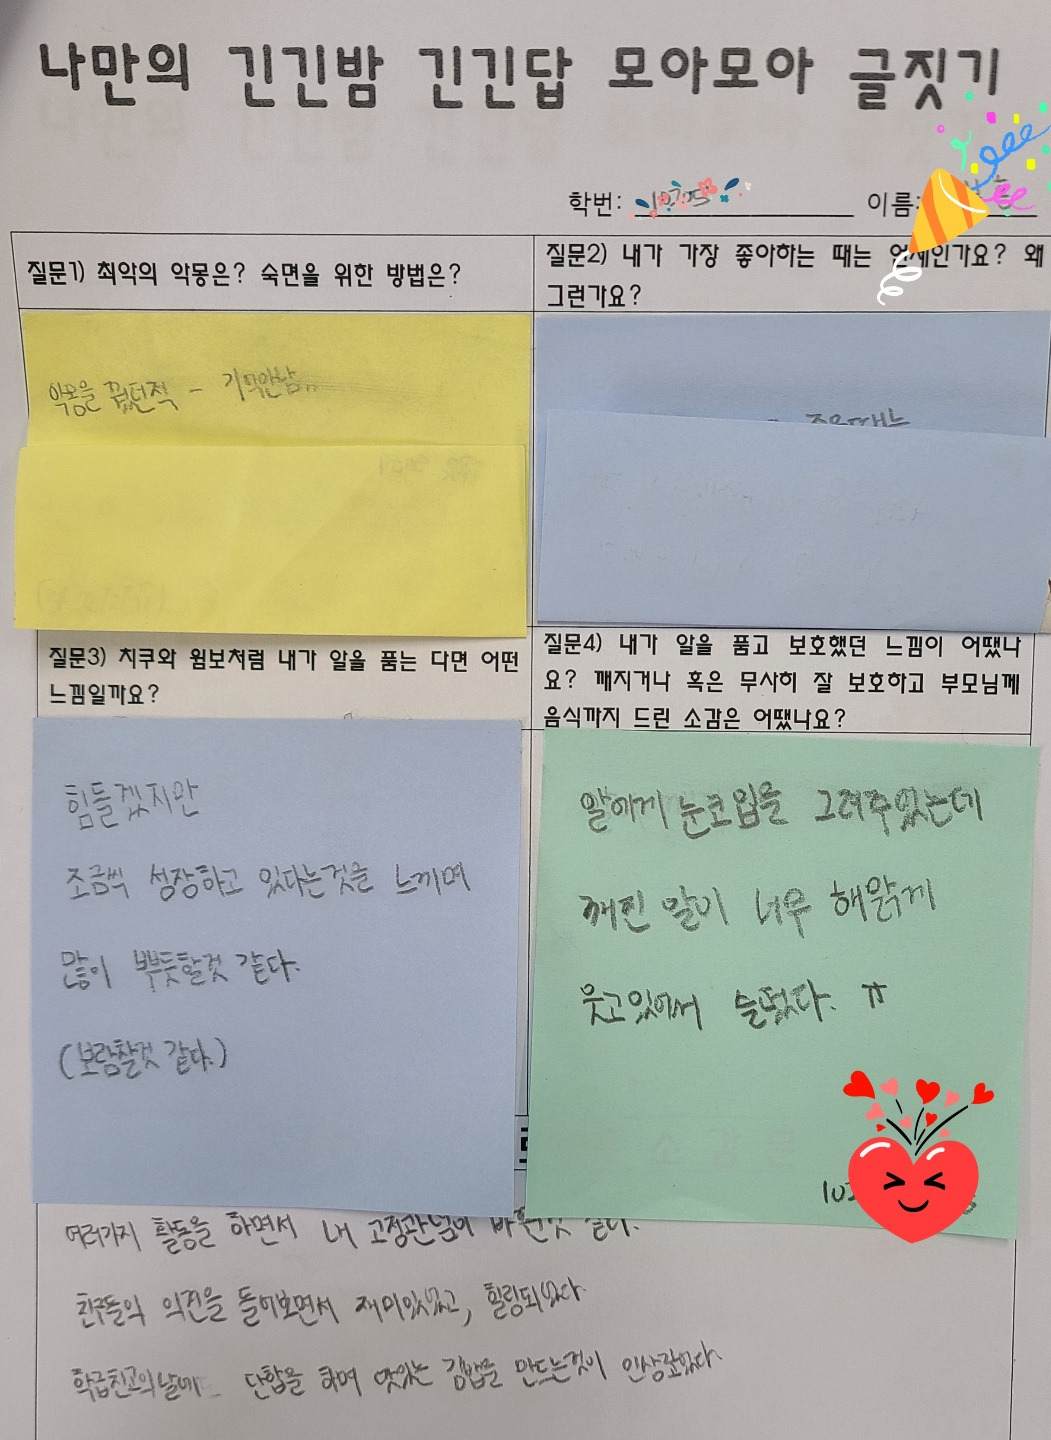 나만의 긴긴밤 긴긴답 모아모아 글짓기
학번: 이름:
질문1) 최악의 악몽은? 숙면을 위한 방법은?
질문2) 내가 가장 좋아하는 때는 언제인가요? 왜
그런가요?
악몽을 꿨던적 - 기억안남..
좋을때는
질문3) 치쿠와 윔보처럼 내가 알을 품는 다면 어떤
느낌일까요?
질문4) 내가 알을 품고 보호했던 느낌이 어땠나
요? 깨지거나 혹은 무사히 잘 보호하고 부모님께
음식까지 드린 소감은 어땠나요?
힘들겠지만
조금씩 성장하고 있다는것을 느끼며
많이 뿌듯할것 같다.
(보람찰것 같다.)
알에게 눈코입을 그려주었는데
깨진 알이 너무 해맑게
웃고있어서 슬펐다. ㅠ
여러가지 활동을 하면서 내 고정관념이 바뀐것 같다.
친구들의 의견을 들어보면서 재미있었고, 힐링되었다.
학급친교의날에 단합을 하며 맛있는 김밥을 만드는것이 인상깊었다.